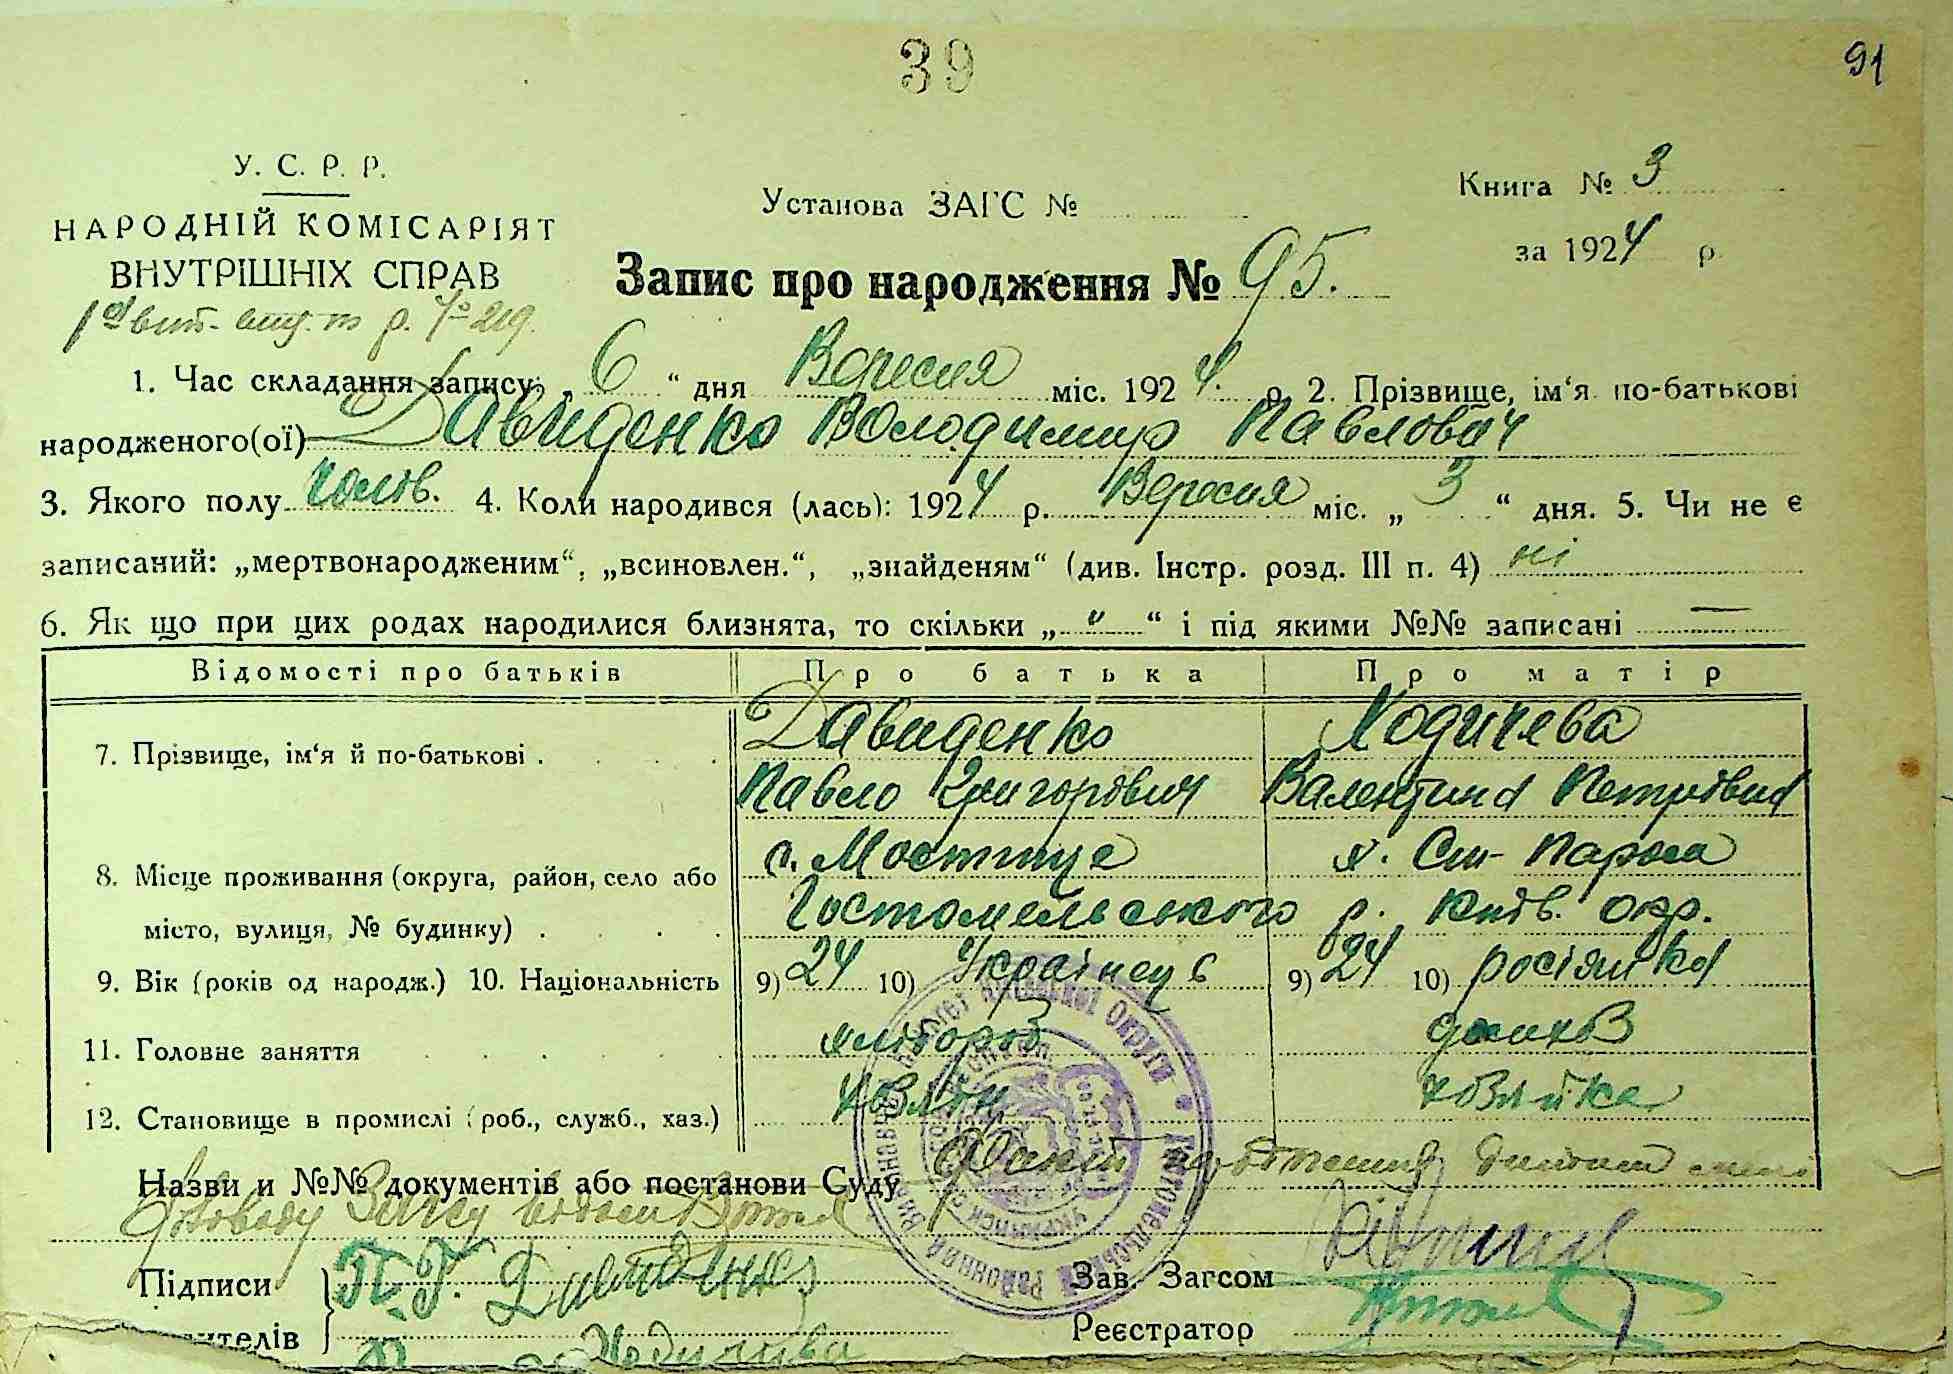 39
91
У. С. Р. Р.
НАРОДНІЙ КОМІСАРІЯТ
ВНУТРІШНІХ СПРАВ
Установа ЗАГС №
Книга № 3
за 1924 р.
Запис про народження № 95.
1. Час складання запису: „ 6 “ дня Вересня міс. 1924. р. 2. Прізвище, ім‘я по-батькові
народженого(ої) Давиденко Володимир Павлович
3. Якого полу чолов. 4. Коли народився (лась): 1924 р. Вересня міс. „ 3 “ дня. 5. Чи не є
записаний: „мертвонародженим“, „всиновлен.“, „знайденям“ (див. Інстр. розд. III п. 4) ні
6. Як що при цих родах народилися близнята, то скільки „ " “ і під якими №№ записані —
Відомості про батьків Про батька Про матір
7. Прізвище, ім‘я й по-батькові . Давиденко Ходичева
Павло Григорович Валентина Петрівна
8. Місце проживання (округа, район, село або с. Мостище х.
місто, вулиця, № будинку) . Гостомельського р. Київ. окр.
9. Вік (років од народж.) 10. Національність 9) 24 10) Українець 9) 24 10) росіянка
11. Головне заняття хлібороб
12. Становище в промислі (роб., служб., хаз.) хазяйка
Назви и №№ документів або постанови Суду Факт
Підписи П. Г. Давиденко
Зав. Загсом
ителів
Реєстратор